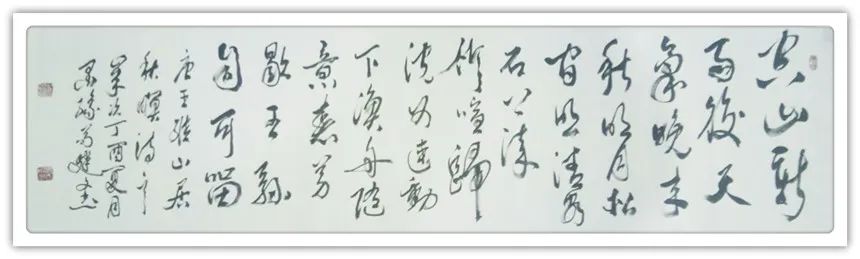 空山新
雨後天
氣晚来
秋明月松
间照清泉
石上流
竹喧歸
浣女蓮動
下漁舟隨
意春芳
歇王孫
自可留
唐王維山居
秋暝詩
歲次丁酉夏月